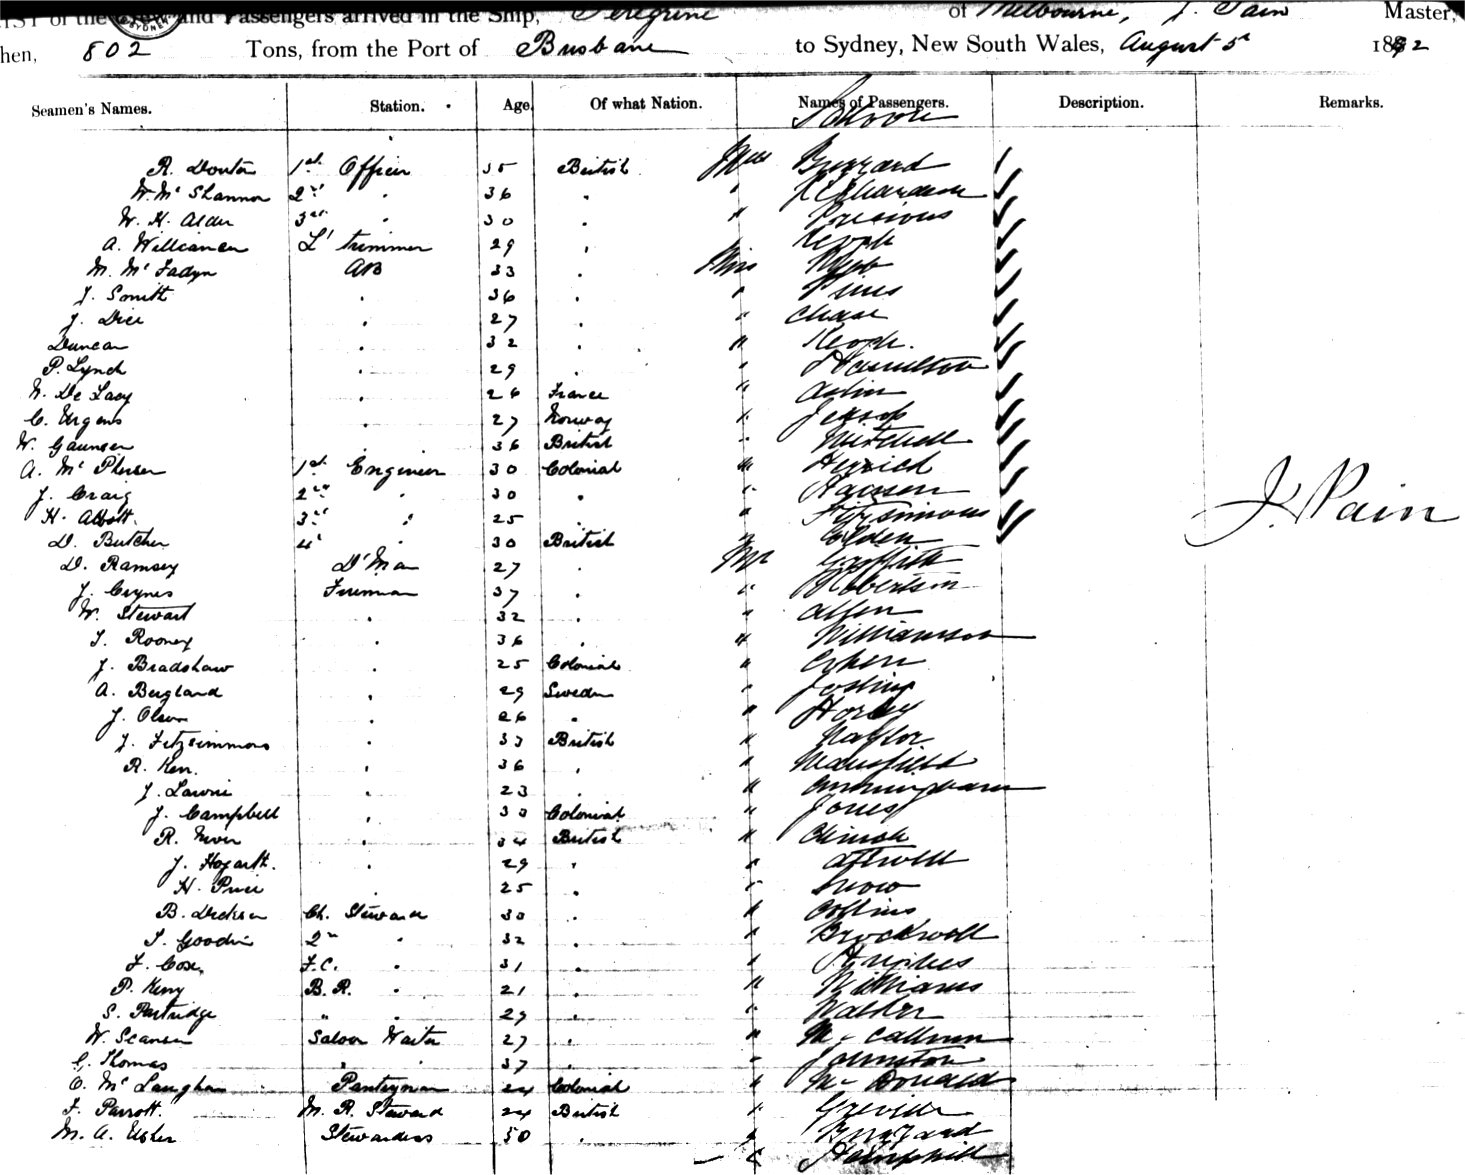 LIST of the Crew and Passengers arrived in the Ship, Peregrine of Melbourne, J. Pain Master,
then, 802 Tons, from the Port of Brisbane to Sydney, New South Wales, August 5th 1892
SYDNEY
Seamen's Names. Station. Age. Of what Nation. Names of Passengers. Description. Remarks.
Saloon
R. Douton 1st Officer 35 British Mrs Buzzard
W. Mc Shannon 2nd " 36 " " Richardson
W. H. Alder 3rd " 30 " " Precious
A. L' trimmer 29 " Keogh
M. Mc Fadyn AB 33 " Miss Webb
J. Smith " 36 " "
J. Dice " 27 " " Chase
Duncan " 32 " " Keogh.
P. Lynch " 29 " " Hamilton
N. De Lacy " 26 France "
C. Urgens " 27 Norway " Jessop
W. Gaunsen " 36 British " Mitchell
A. Mc Pherson 1st Engineer 30 Colonial "
J. Craig 2nd " 30 " " Hansen
H. Abbott. 3rd " 25 " " Fitzsimmons
D. Butcher 4th 30 British " Olden
D. Ramsey D'Man 27 " Mr Griffith
J. Crynes Fireman 37 " " Robertson
W. Stewart " 32 " " Allen
T. Rooney " 36 " " Williamson
J. Bradshaw " 25 Colonial " Cohen
A. Bergland " 29 Sweden " Josling
J. Olson " 26 " "
J. Fitzsimmons " 33 British " Naylor
R. Ker. " 36 " " Mansfield
J. Lawrie " 23 " " Cunningham
J. Campbell " 30 Colonial " Jones
R. Niven " 34 British "
J. Hogarth. " 29 " " Attwell
H. Price " 25 " " Snow
B. Dickson Ch. Steward 30 " " Collins
T. Goodwin 2nd " 32 " " Brockwell
F. Cox, F.C. " 31 " " Hughes
P. Kerry B.R. " 21 " " Williams
S. Partridge " " 29 " " Walder
W. Scansen Saloon Waiter 27 " " Mc Callum
G. Thomas " " 37 " " Johnston
C. Mc Laughan Pantryman 24 Colonial " Mc Donald
F. Parrott. M. R. Steward 24 British " Greville
M. A. Usher Stewardess 50 " " Buzzard
" Hemphill
J. Pain